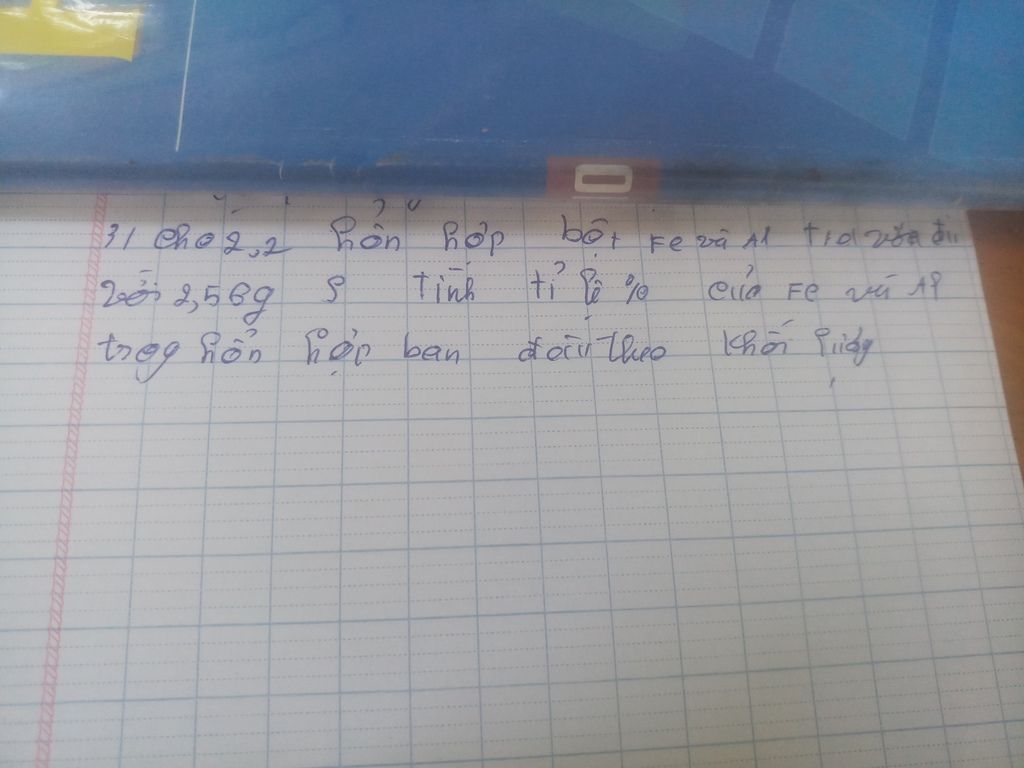 3/ Cho 2,2 hổn hợp bột Fe và Al t/d vừa đủ
với 2,56g S Tính tỉ lệ % của Fe và Al
trog hổn hợp ban đầu theo khối lượg